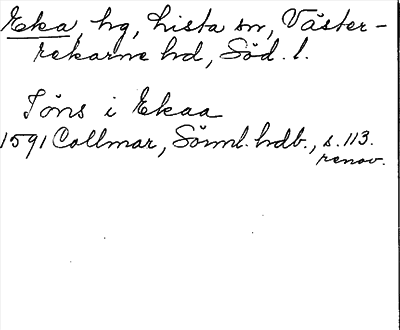 Eka, hg, Lista sn, Väster-
rekarne hd, Söd. l.
Töns i Ekaa
1591 Collmar, Sörml. hdb., s. 113.
renov.